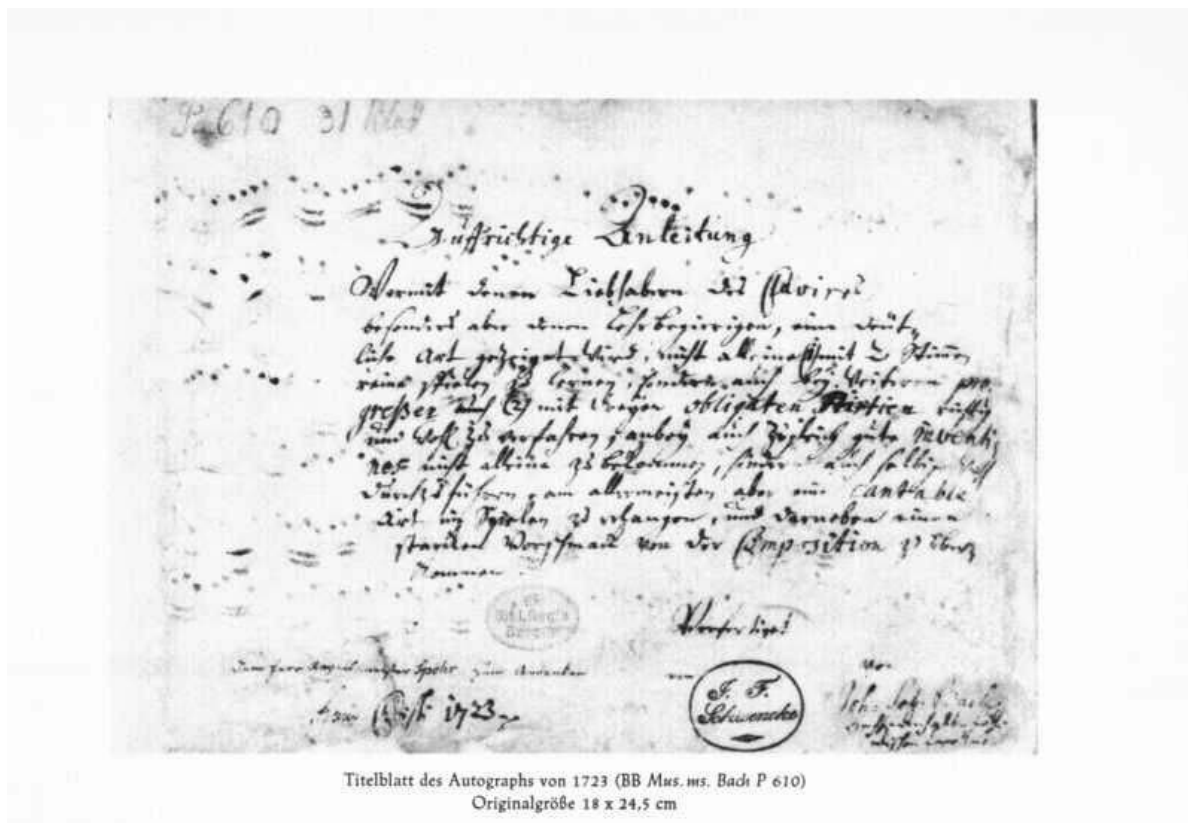 P 610 31 Blatt
Auffrichtige Anleitung
Wormit denen Liebhabern des Clavires
besonders aber denen Lehrbegierigen, eine deüt-
liche Art gezeiget wird, nicht alleine mit 2 Stimen
reine spielen zu lernen, sondern auch bey weiteren pro
greßen auch (2) mit dreyen obligaten Partien richtig
und wohl zu verfahren, anbey auch zugleich gute inventi
nes nicht alleine zu bekommen, sondern auch selbige wohl
durchzuführen, am allermeisten aber eine cantable
Art im Spielen zu erlangen, und darneben einen
starcken Vorschmack von der Composition zu über
kommen
Verfertiget
Dem Herrn Kapellmeister Spohr zum Andenken von
J. F.
Schwencke
von
Joh. Seb. Bach
Anno Christi 1723
Titelblatt des Autographs von 1723 (BB Mus. ms. Bach P 610)
Originalgröße 18 x 24,5 cm